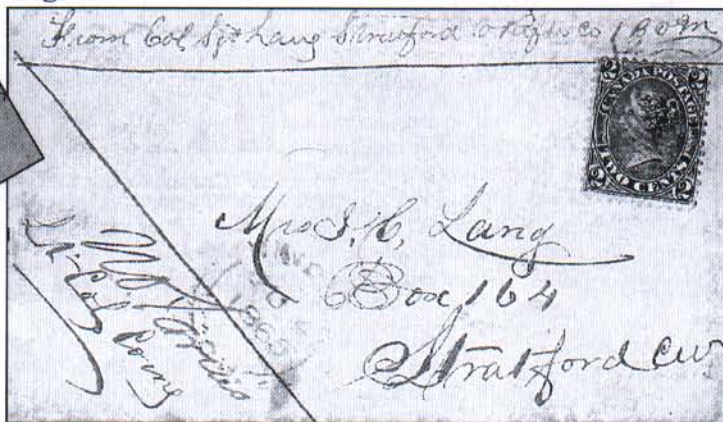 From Col Sjt Lang Stratford Rifle Co
CANADA POSTAGE
TWO CENTS
2 2 2 2
Mrs J. H. Lang
Box 164
Stratford CW
1865
Lt. Col
Comg